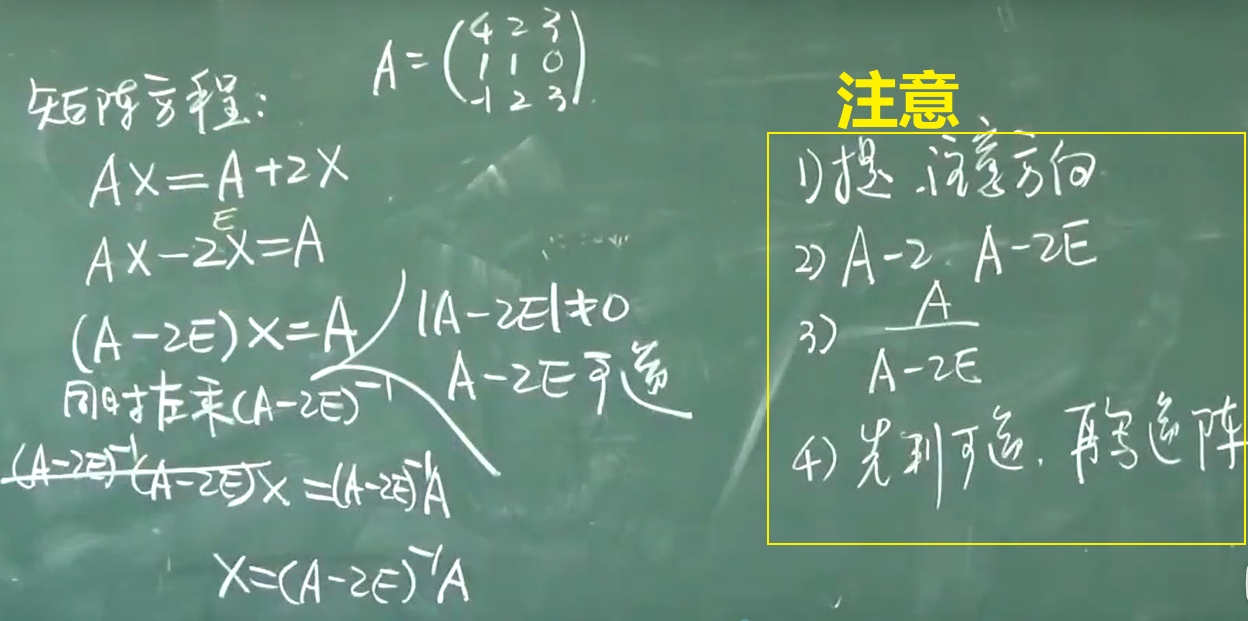 A = (4 2 3
1 1 0
-1 2 3).
矩阵方程:
AX=A+2X
E
AX-2X=A
(A-2E)X=A
|A-2E|≠0
A-2E可逆
同时左乘(A-2E)⁻¹
(A-2E)⁻¹(A-2E)X=(A-2E)⁻¹A
X=(A-2E)⁻¹A
注意
1)提.注意方向
2) A-2. A-2E
3) A
A-2E
4) 先判可逆.再写逆阵